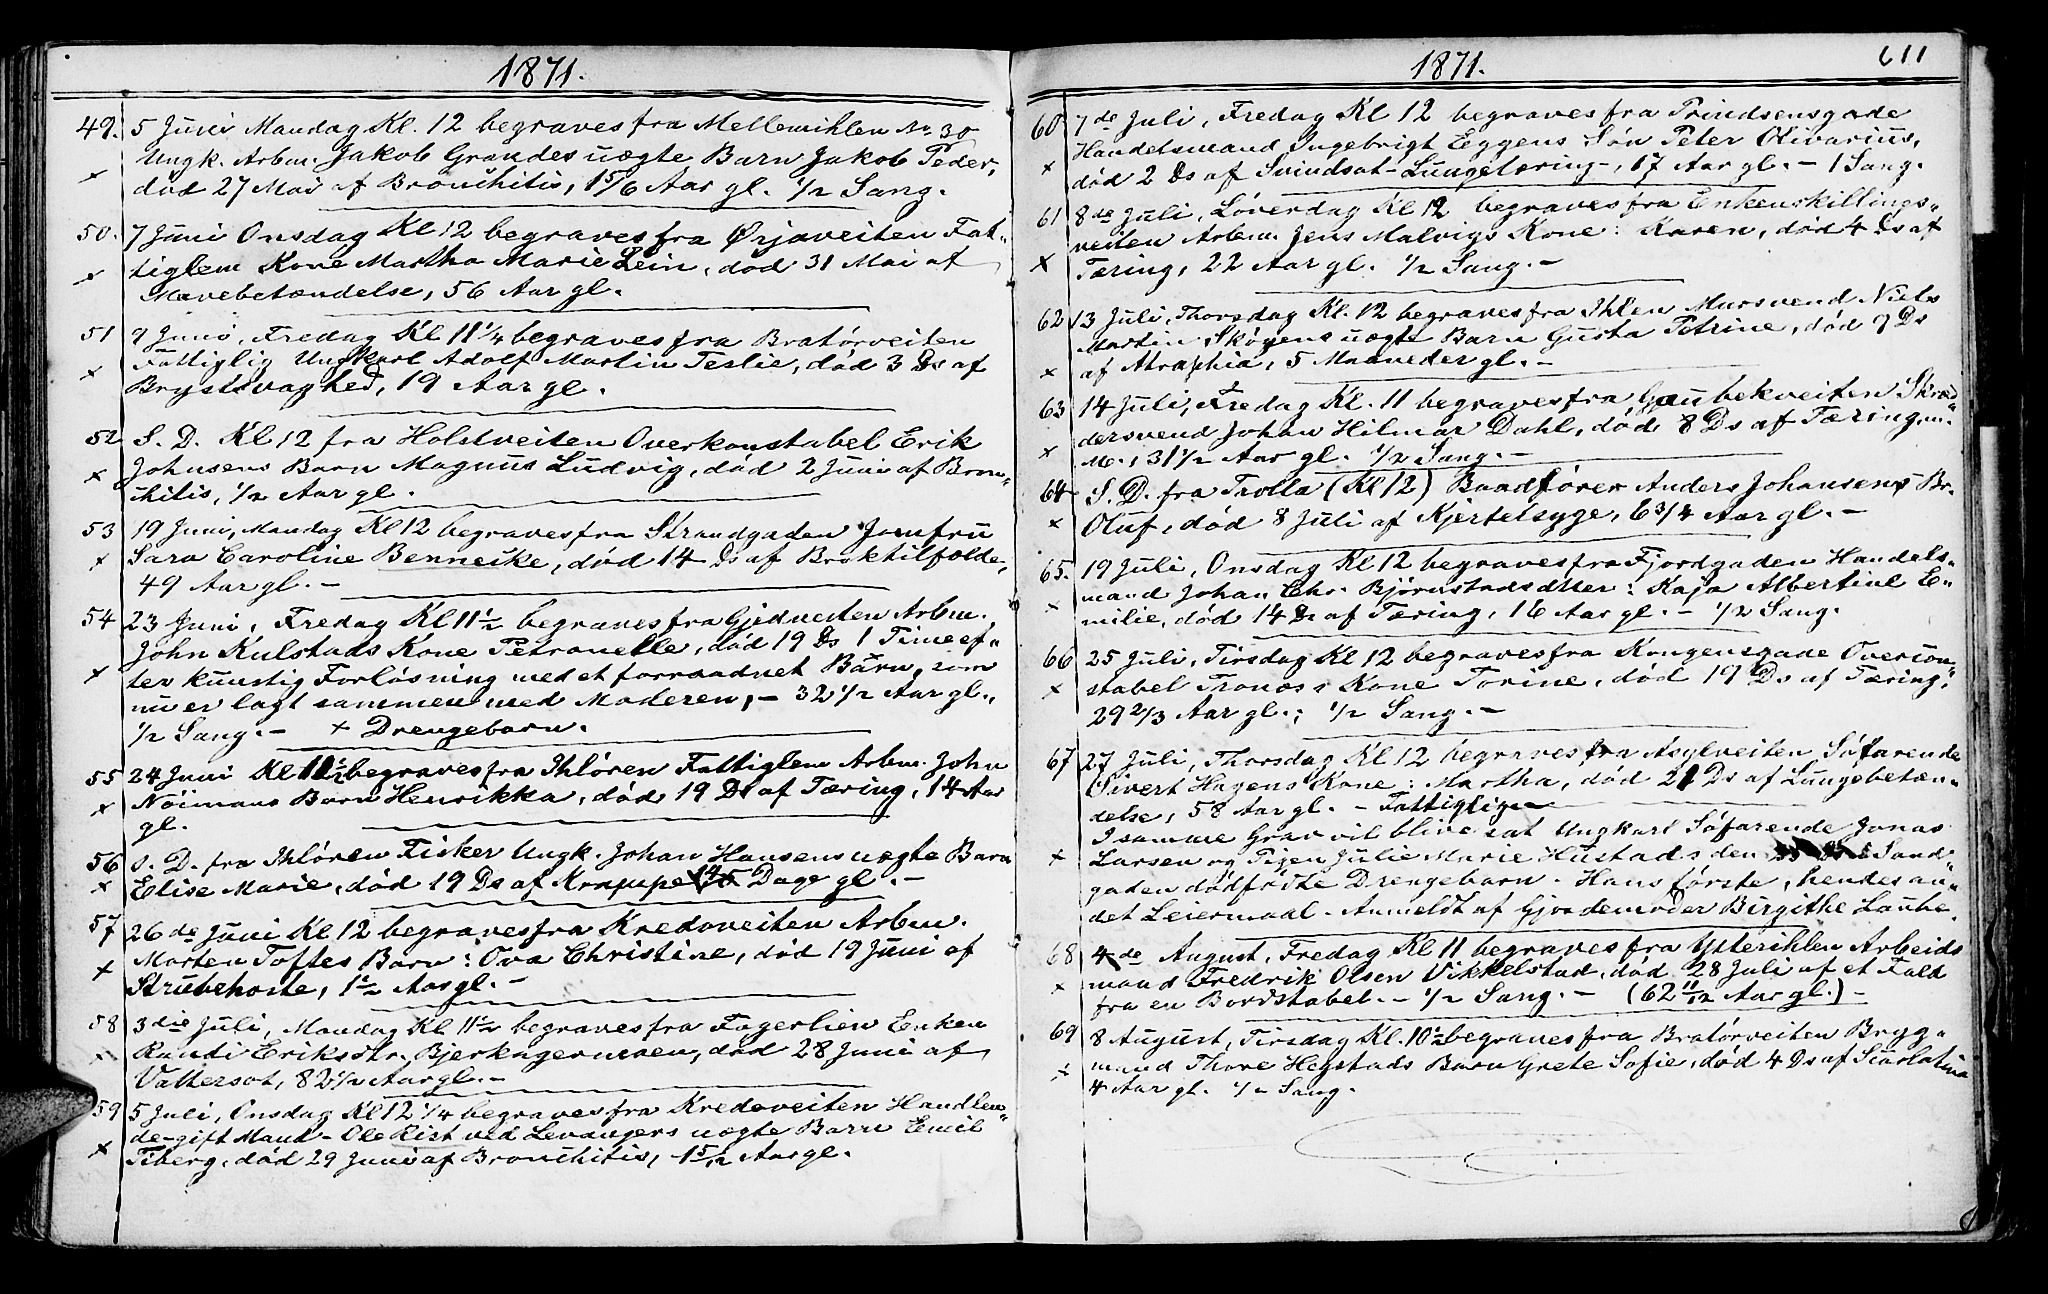 1871.
49. 5 Juni Mandag Kl. 12 begraves fra Mellemihlen No. 30
Ungk. Arbm. Jakob Grandes uægte Barn Jakob Peder,
× død 27 Mai af Bronchitis, 1 5/6 Aar gl. 1/2 Sang.
50. 7 Juni Onsdag Kl 12 begraves fra Ørjaveiten Fat„
× tiglem Kone Martha Marie Lein, død 31 Mai af
Mavebetændelse, 56 Aar gl.
51 9 Juni, Fredag Kl 11 1/4 begraves fra Bratørveiten
Fattiglig Ungkarl Adolf Martin Teslie, død 3 Ds af
× Brystsvaghed, 19 Aar gl.
52 S. D. Kl 12 fra Holstveiten Overkonstabel Erik
× Johnsens Barn Magnus Ludvig, død 2 Juni af Bron„
chitis, 1/2 Aar gl.
53 19 Juni, Mandag Kl 12 begraves fra Strandgaden Jomfru
× Sara Caroline Bennecke, død 14 Ds af Broktilfælde,
49 Aar gl. –
54 23 Juni, Fredag Kl 11 1/2 begraves fra Gjedveiten Arbm.
John Kulstads Kone Petronelle, død 19 Ds 1 Time ef„
× ter kunstig Forløsning med et forraadnet Barn, som
nu er lagt sammen med Moderen, – 32 1/2 Aar gl.,
1/2 Sang. – + Drengebarn.
55 24 Juni Kl 11 1/2 begraves fra Ihløren Fattiglem Arbm. John
× Nöimans Barn Henrikka, død 19 Ds af Tæring, 14 Aar
gl.
56 S. D. fra Ihløren Fisker Ungk. Johan Hansens uægte Barn
× Elise Marie, død 19 Ds af Krampe, 14 Dage gl. –
57 26de Juni Kl 12 begraves fra Kredoveiten Arbm.
Morten Toftes Barn: Ova Christine, død 19 Juni af
× Strubehoste, 1 1/2 Aar gl. –
58 3die Juli, Mandag Kl 11 1/2 begraves fra Fagerlien Enken
× Randi Eriksdtr. Bjerkagermoen, død 28 Juni af
Vattersot, 82 1/2 Aar gl. –
59 5 Juli, Onsdag Kl 12 1/4 begraves fra Kredoveiten Handlen„
de gift Mand – Ole Rist ved Levangers uægte Barn Emil
× Tiberg, død 29 Juni af Bronchitis, 1 5/12 Aar gl.
1871.
611
60 7de Juli, Fredag Kl 12 begraves fra Prindsensgade
Handelsmand Ingebrigt Eggens Søn Peter Olivarius,
× død 2 Ds af Svindsot-Lungetæring –, 17 Aar gl. – 1 Sang.
61 8de Juli, Løverdag Kl 12 begraves fra Enkenskillings„
veiten Arbm. Jens Malvigs Kone: Karen, død 4 Ds af
× Tæring, 22 Aar gl. 1/2 Sang. –
62 13 Juli, Thorsdag Kl. 12 begraves fra Ihlen Mursvend Niels
Martin Skøyens uægte Barn Gusta Petrine, død 9 Ds
× af Atrophia, 5 Maaneder gl. –
63 14 Juli, Fredag Kl. 11 begraves fra Gaubekveiten Skræd„
dersvend Johan Hilmar Dahl, død 8 Ds af Tæring, m.
× M., 31 1/2 Aar gl. 1/2 Sang. –
64 S. D. fra Trolla (Kl 12) Baadfører Anders Johansens Br.
× Oluf, død 8 Juli af Kjertelsyge, 6 3/4 Aar gl. –
65. 19 Juli, Onsdag Kl 12 begraves fra Fjordgaden Handels„
mand Johan Chr. Bjørnstads dtter: Kaja Albertine E„
× milie, død 14 Ds af Tæring, 16 Aar gl. – 1/2 Sang.
66 25 Juli, Tirsdag Kl 12 begraves fra Kongensgade Overcon„
× stabel Tronæs's Kone Torine, død 19 Ds af Tæring,
29 2/3 Aar gl.; 1/2 Sang. –
67 27 Juli, Thorsdag Kl 12 begraves fra Asylveiten Söfarende
Sivert Hagens Kone: Martha, død 21 Ds af Lungebetæn„
delse, 58 Aar gl. – Fattiglig –
I samme Grav vil blive sat Ungkarl Söfarende Jonas
× Larsen og Pigen Julie Marie Hustads den i Sand„
gaden dødfödte Drengebarn. Hans første, hendes an„
det Leiermaal. Anmeldt af Gjordemoder Birgithe Laube.
68 4de August, Fredag Kl 11 begraves fra Ytterihlen Arbeids
× mand Fredrik Olsen Vikkelstad, død 28 Juli af et Fald
fra en Bordstabel. – 1/2 Sang. – (62 11/12 Aar gl.) –
69 8 August, Tirsdag Kl. 10 1/2 begraves fra Bratørveiten Bryg„
× mand Thore Hegstads Barn Grete Sofie, død 4 Ds af Scarlatina
4 Aar gl. 1/2 Sang.